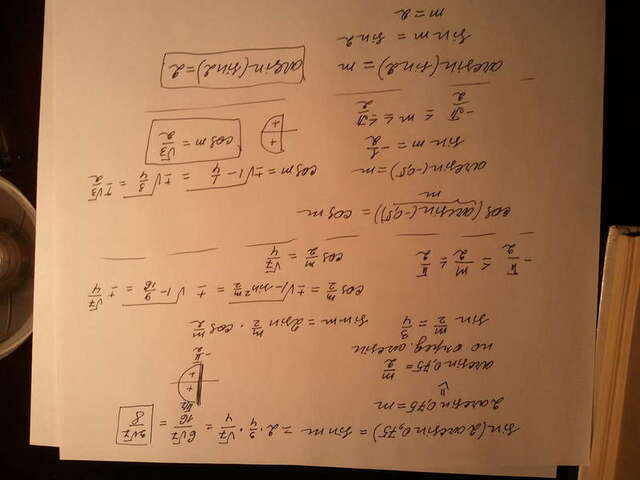 sin(2arcsin0,75) = sin m = 2 · 3/4 · √7/4 = 6√7/16 = 3√7/8
2arcsin0,75 = m
π/2
+
+
-π/2
arcsin0,75 = m/2
по опред. arcsin
sin m/2 = 3/4 sin m = 2sin m/2 · cos m/2
cos m/2 = ±√1-sin² m/2 = ±√1-9/16 = ±√7/4
-π/2 ≤ m/2 ≤ π/2 cos m/2 = √7/4
cos(arcsin(-0,5)) = cos m
m
arcsin(-0,5) = m cos m = ±√1-1/4 = ±√3/4 = ±√3/2
sin m = -1/2 + + cos m = √3/2
-π/2 ≤ m ≤ π/2
arcsin(sin2) = m arcsin(sin2) = 2
sin m = sin2
m = 2